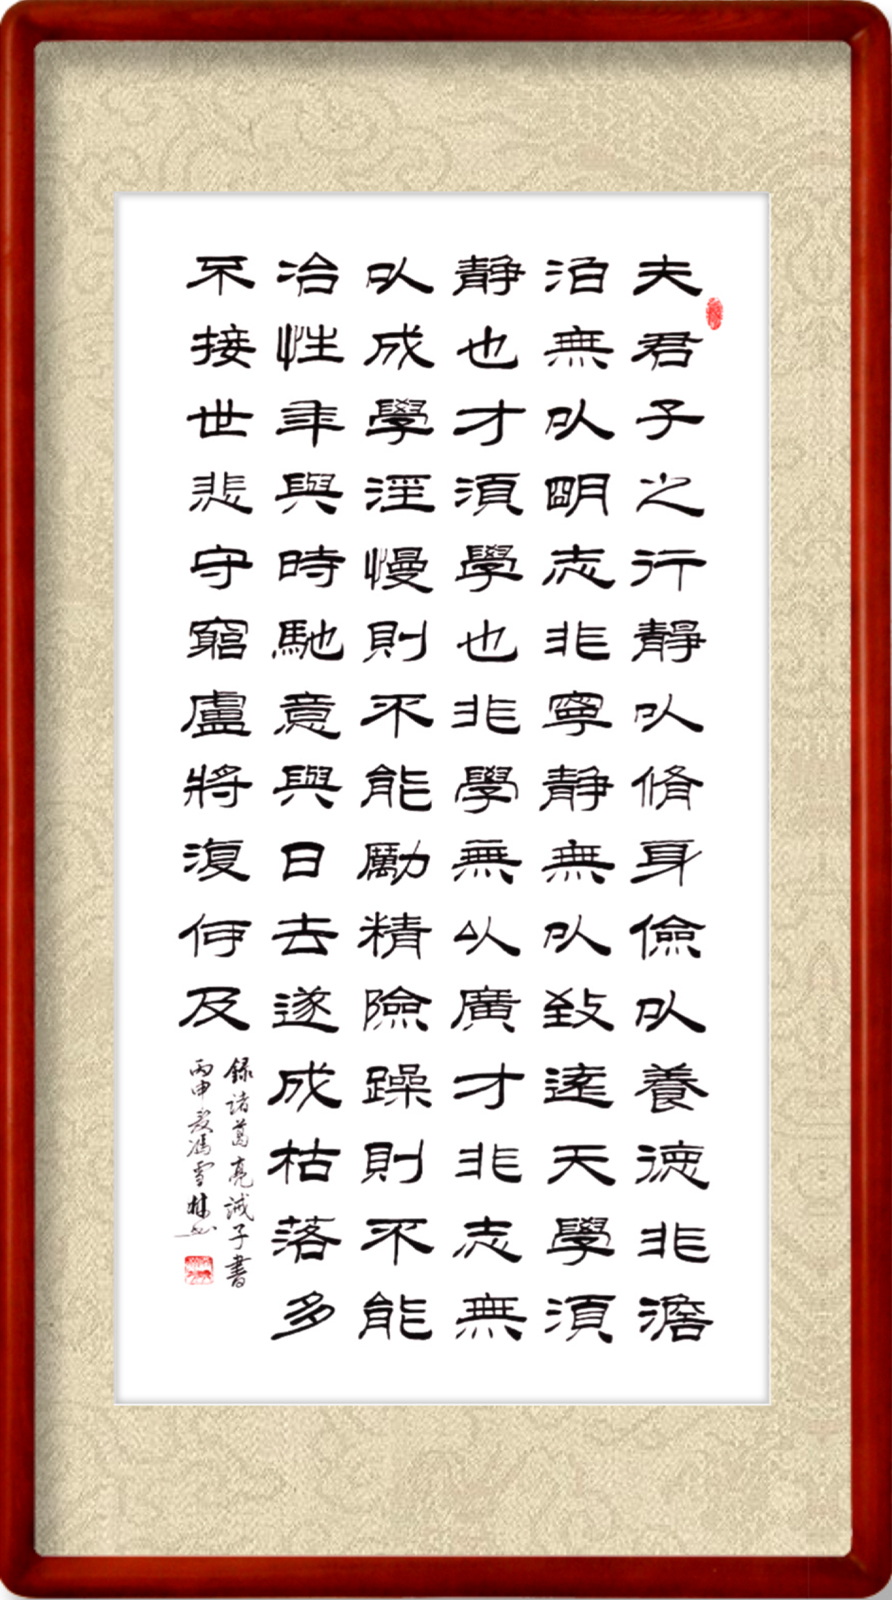 夫君子之行靜以脩身儉以養德非澹
泊無以明志非寧靜無以致遠天學須
靜也才須學也非學無以廣才非志無
以成學淫慢則不能勵精險躁則不能
冶性年與時馳意與日去遂成枯落多
不接世悲守窮廬將復何及
録諸葛亮誡子書
丙申夏馮雪林書